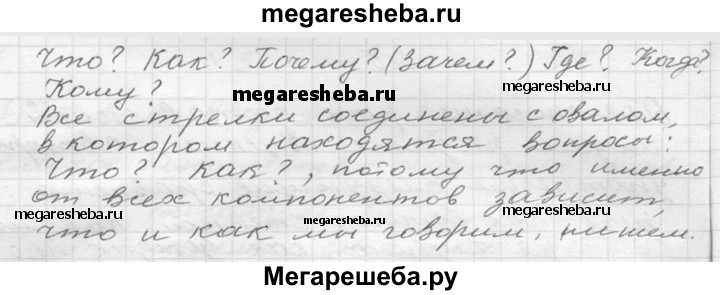 megaresheba.ru
Что? Как? Почему? (Зачем?) Где? Когда?
Кому?
megaresheba.ru
megaresheba.ru
Все стрелки соединены с овалом,
в котором находятся вопросы:
Что? Как?, потому что именно
от всех компонентов зависит,
megaresheba.ru
megaresheba.ru
megaresheba.ru
что и как мы говорим, пишем.
Мегарешеба.ру